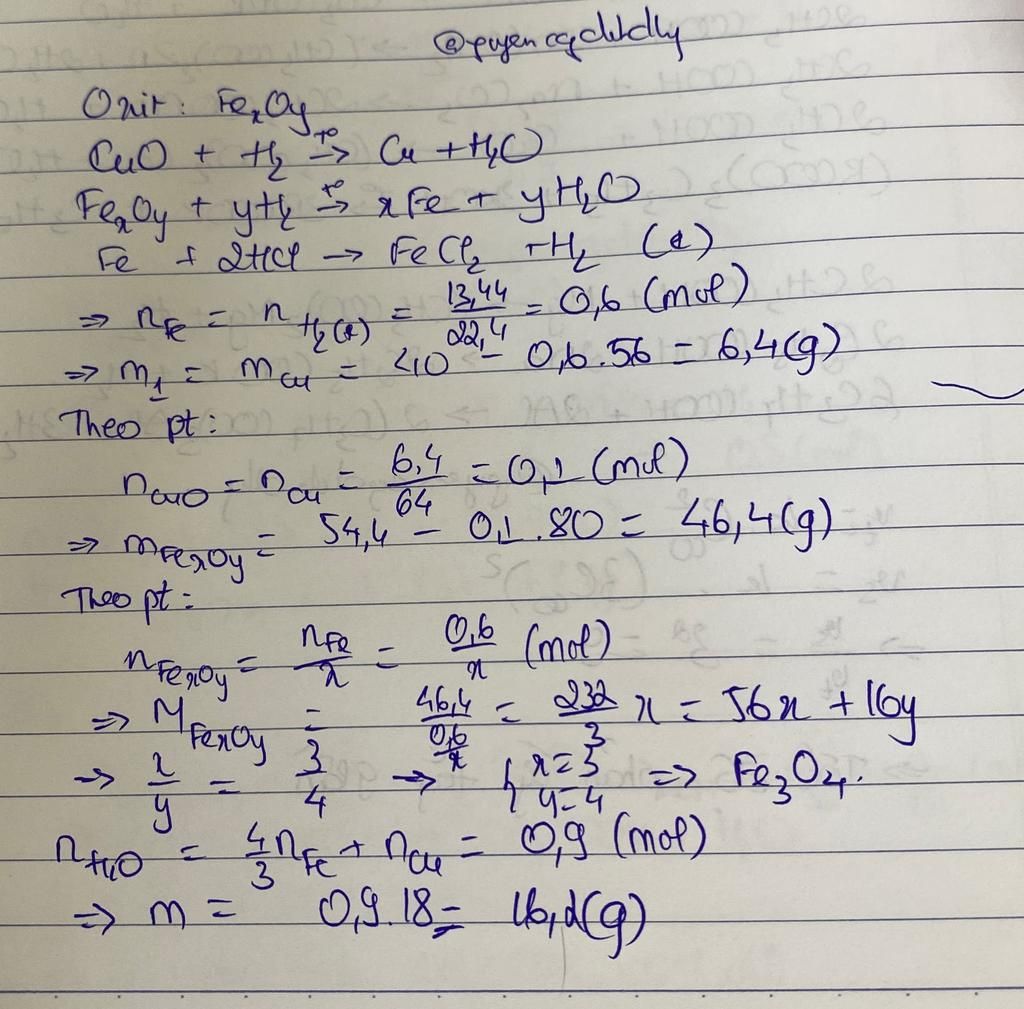 Oxit: FeₓOy
CuO + H₂ →(t°) Cu + H₂O
FeₓOy + yH₂ →(t°) xFe + yH₂O
Fe + 2HCl → FeCl₂ + H₂ (*)
⇒ n_Fe = n_H₂(*) = 13,44/22,4 = 0,6 (mol)
⇒ m₁ = m_Cu = 40 - 0,6.56 = 6,4(g)
Theo pt:
n_CuO = n_Cu = 6,4/64 = 0,1 (mol)
⇒ m_FeₓOy = 54,4 - 0,1.80 = 46,4(g)
Theo pt:
n_FeₓOy = n_Fe/x = 0,6/x (mol)
⇒ M_FeₓOy = 46,4/(0,6/x) = 232/3 x = 56x + 16y
→ x/y = 3/4 → { x=3 y=4 ⇒ Fe₃O₄.
n_H₂O = 4/3 n_Fe + n_Cu = 0,9 (mol)
⇒ m = 0,9.18 = 16,2(g)